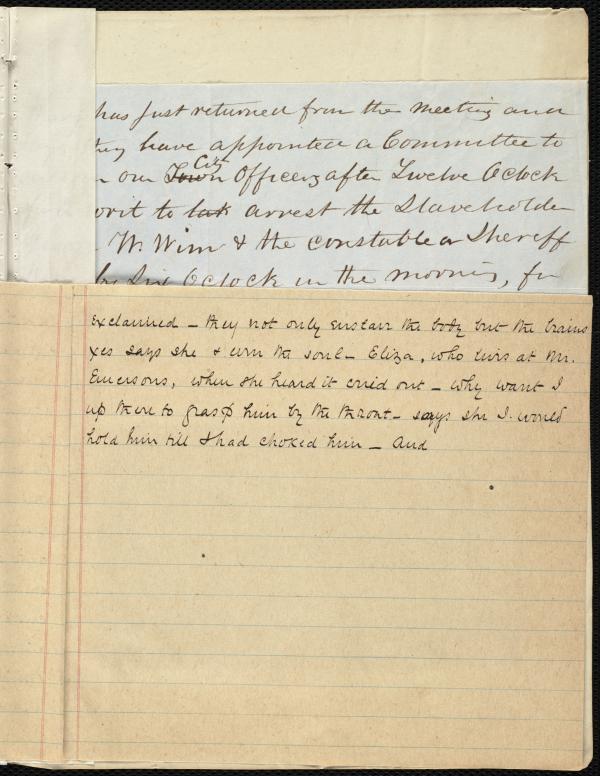 has just returned from the meeting and
they have appointed a Committee to
our Town City Officers after Twelve Oclock
writ to tak arrest the Slaveholder
Wm Wim & the constable or Sheriff
by Six Oclock in the morning, for
exclaimed – they not only enslave the body but the brains
yes says she & even the soul – Eliza, who lives at Mr.
Emersons, when she heard it cried out – why want I
up there to grasp him by the throat – says she I would
hold him till I had choked him – And